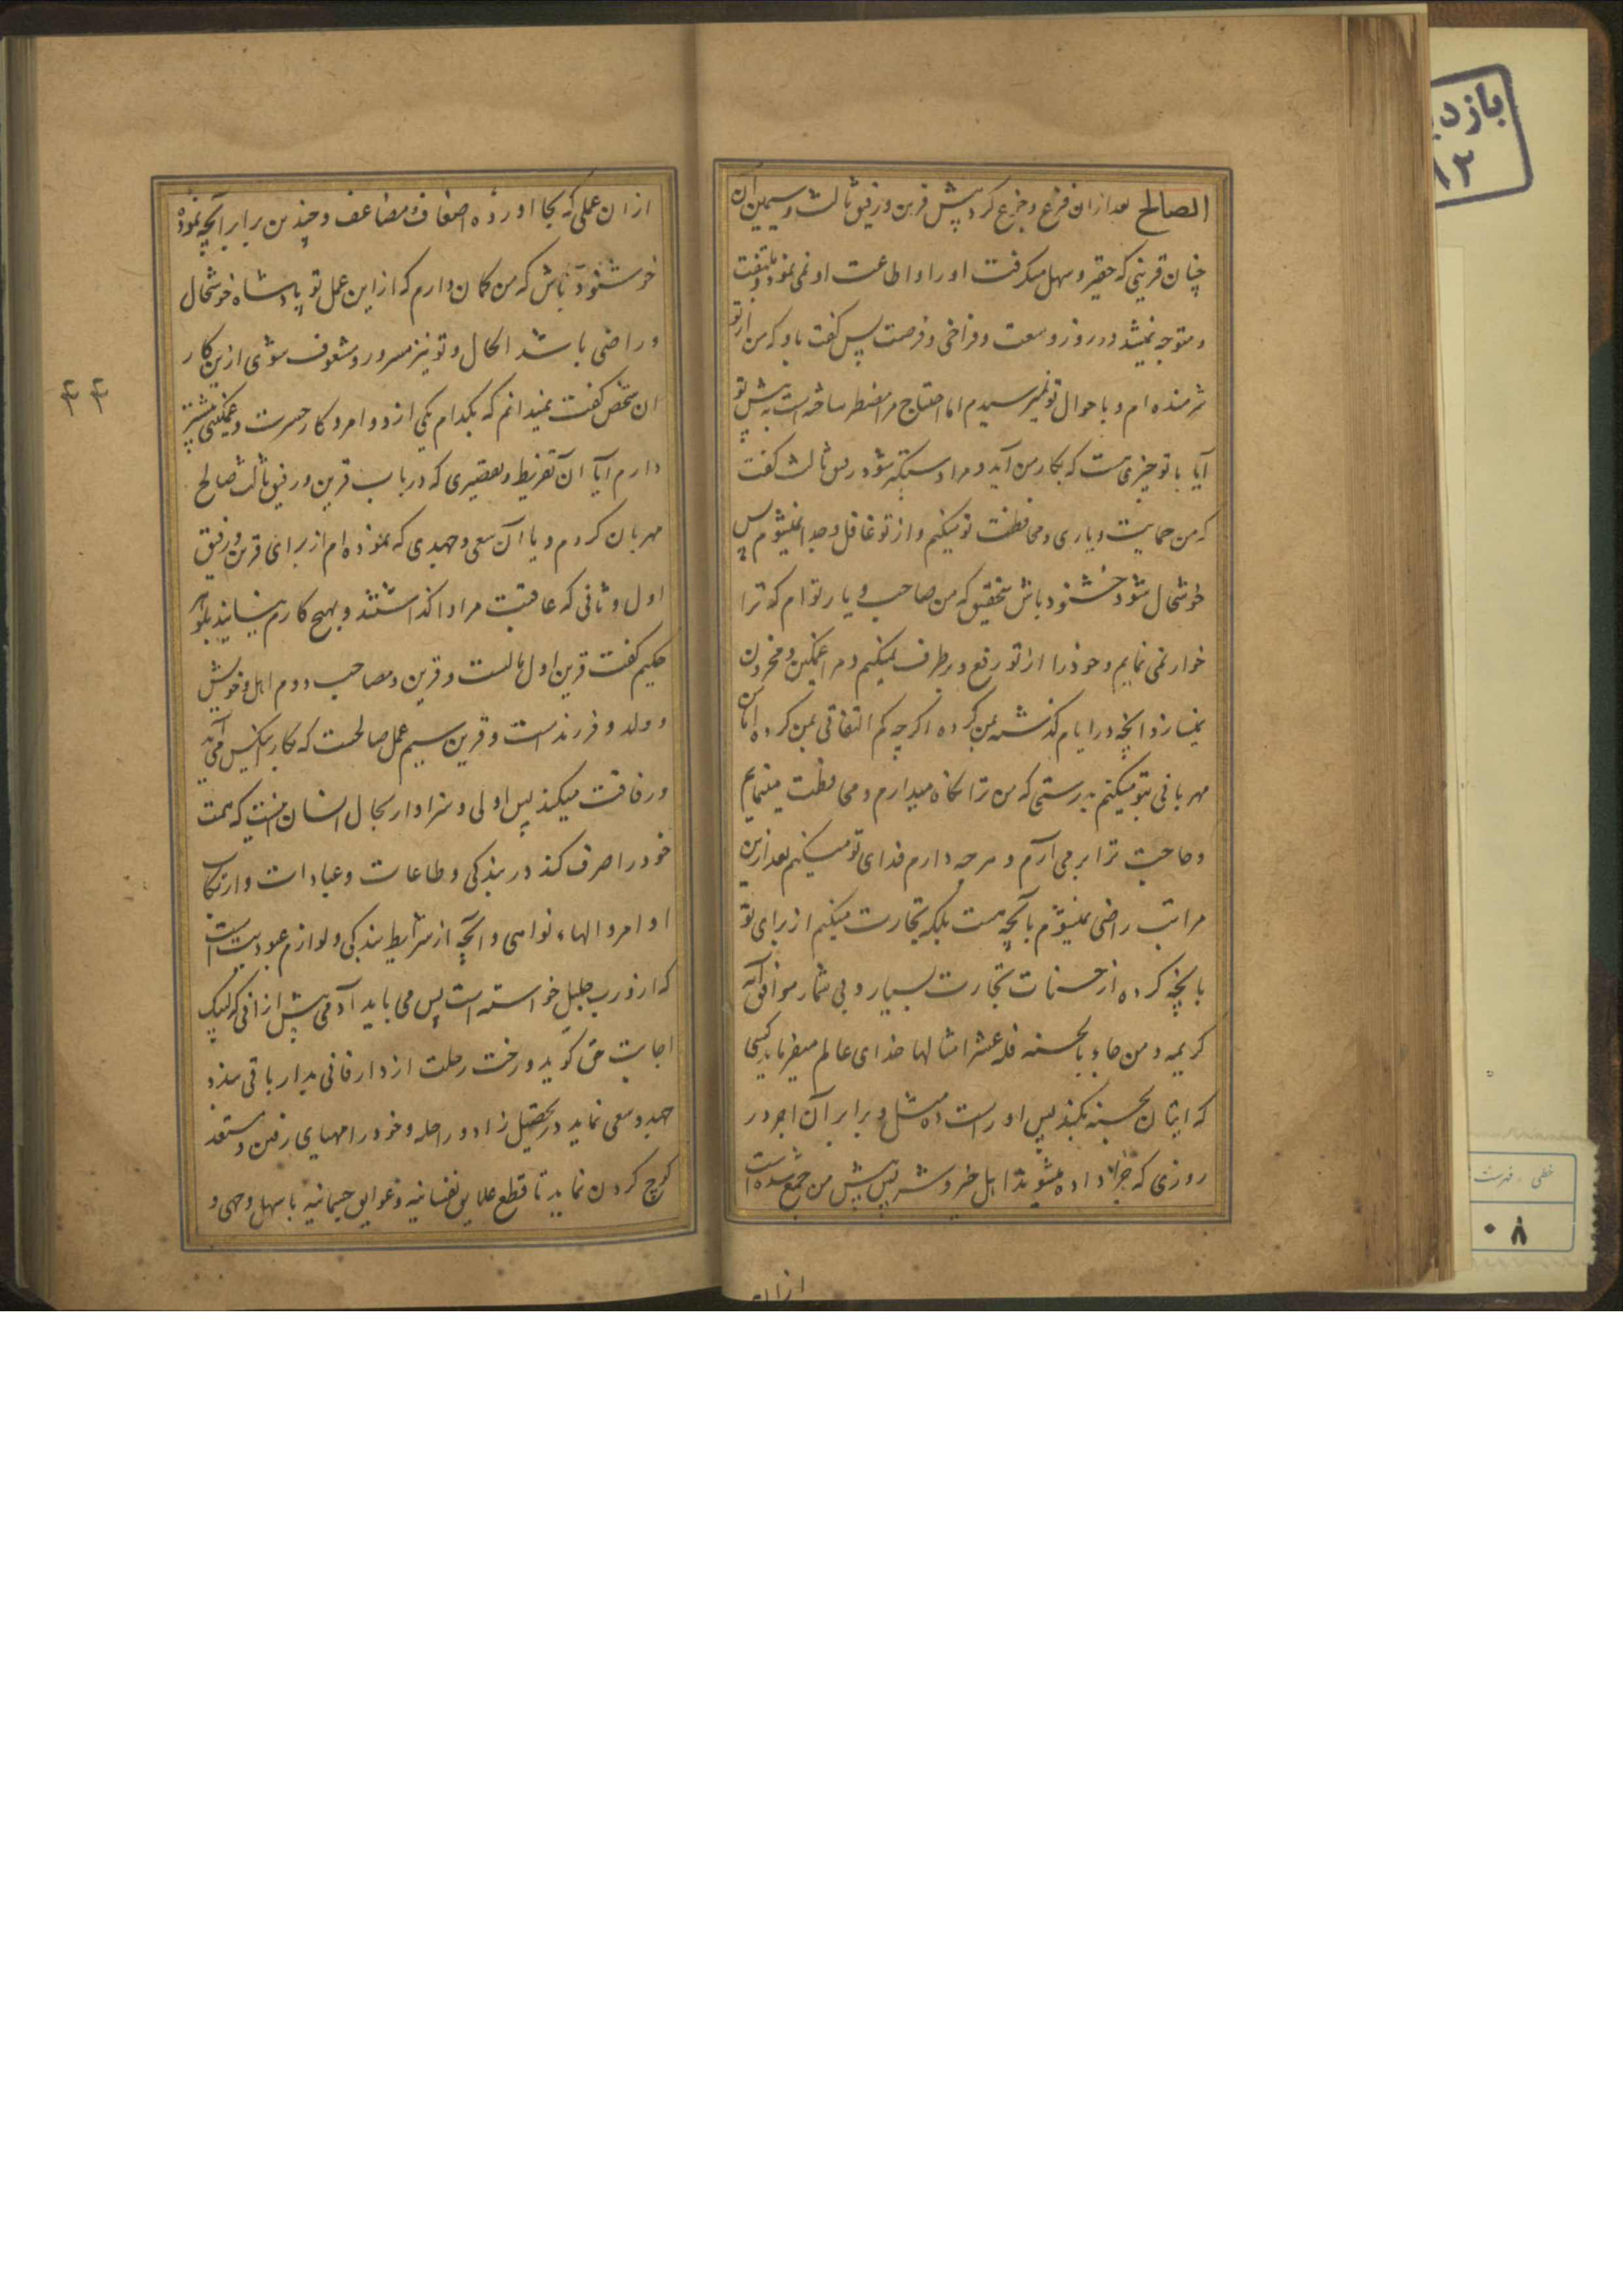 الصالح بعد ازان فزع و جزع کرد پیش قرین و رفیق ثالث و سیمین ان
چنان قرینی که حقیر و سهل میکرفت او را و اطاعت او نمی نمود و ملتفت
و متوجه نمیشد در روز وسعت و فراخی و فرصت پس کفت باو که من از تو
شرمنده ام و باحوال تو نمیرسیدم اما احتیاج مرا مضطر ساخته است به پیش تو
آیا با تو چیزی هست که بکار من آید و مرا دستکیر شود رفیق ثالث کفت
که من حمایت و یاری و محافظت تو میکنم و از تو غافل و جدا نمیشوم پس
خوشحال شو و خشنود باش بتحقیق که من صاحب و یار توام که ترا
خوار نمی نمایم و خود را از تو رفع و برطرف نمیکنم و مرا غمکین و محزون
نمیسازد انچه در ایام کذشته بمن کرده اکرچه کم التفاتی بمن کرده اما من
مهربانی بتو میکنم بدرستی که من ترا نکاه میدارم و محافظت مینمایم
و حاجت ترا بر می آرم و هر چه دارم فدای تو میکنم بعد ازین
مراتب راضی نمیشوم بآنچه هست بلکه تجارت میکنم از برای تو
بانچه کرده از حسنات تجارت بسیار و بی شمار موافق آیه
کریمه و من جاء بالحسنه فله عشر امثالها خدای عالم میفرماید کسی
که اتیان بحسنه بکند پس او راست ده مثل و برابر آن اجر در
روزی که جزا داده میشوند اهل خیر و شر پس پیش من جمع شده است
از ان
ازان عملی که بجا اورده اضعاف مضاعف و چندین برابر آنچه نموده
خوشنود باش که من کمان دارم که از این عمل تو پادشاه خوشحال
و راضی باشد الحال و تو نیز مسرور و مشعوف شوی ازین کار
ان شخص کفت نمیدانم که بکدام یکی از دو امر و کار حسرت و غمکینی بیشتر
دارم آیا آن تفریط و تقصیری که در باب قرین و رفیق ثالث صالح
مهربان کردم و یا آن سعی و جهدی که نموده ام از برای قرین و رفیق
اول و ثانی که عاقبت مرا واکذاشتند و بهیچ کارم نیایند بلوهر
حکیم کفت قرین اول مالست و قرین و مصاحب دوم اهل و خویش
و ولد و فرزند است و قرین سیم عمل صالحست که بکار بیکس می آید
و رفاقت میکند پس اولی و سزاوار بحال انسان اینست که همت
خود را صرف کند در بندکی و طاعات و عبادات و ارتکاب
اوامر و الهاء نواهی و آنچه از شرایط بندکی و لوازم عبودیت است
که ازو رب جلیل خواسته است پس می باید آدمی پیش از انی که لبیک
اجابت حق کوید و رخت رحلت از دار فانی بدار باقی بندد
جهد و سعی نماید در تحصیل زاد و راحله و خود را مهیای رفتن و مستعد
کوچ کردن نماید تا قطع علایق نفسانیه و عوایق جسمانیه باسهل وجهی و
۴۴
بازد
۱۳
خطی ، فهرست
۰۸